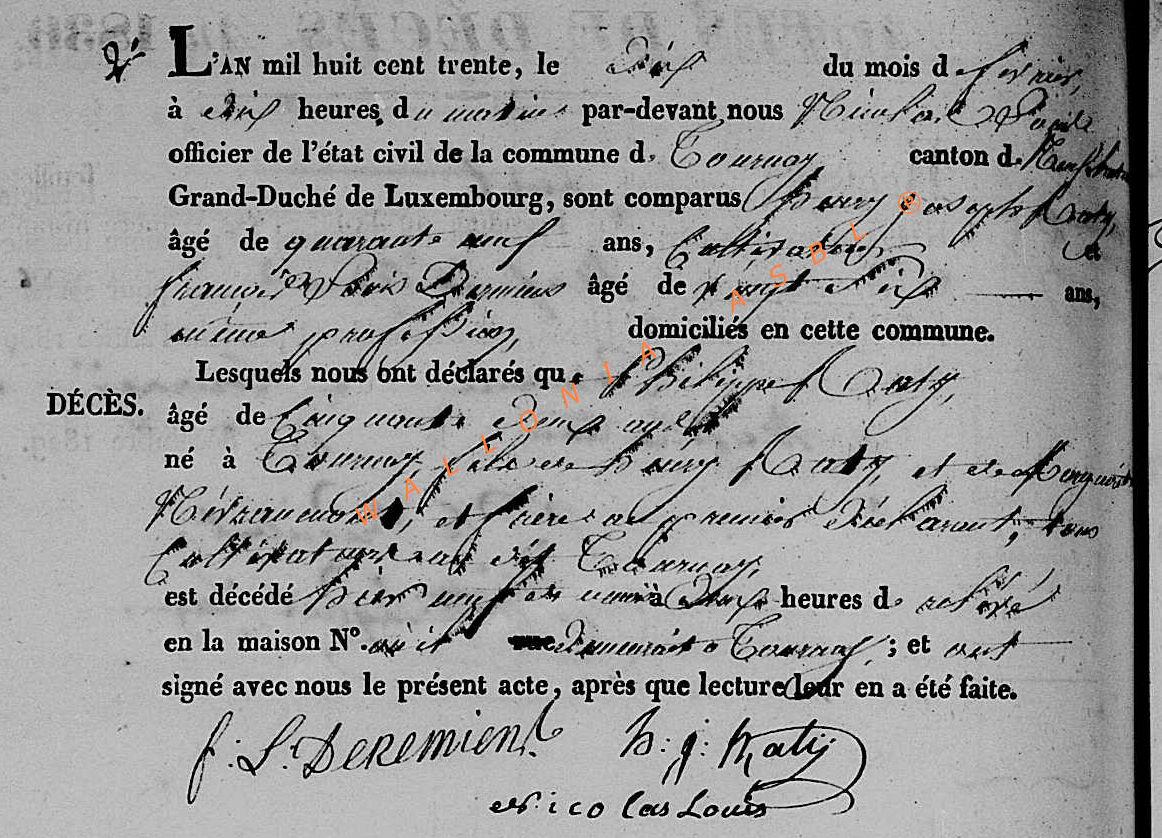 2e
L'AN mil huit cent trente, le dix du mois de fevrier,
à dix heures du matin par-devant nous Nicolas Louis
officier de l'état civil de la commune d. Tournay canton d. Neufchateau
Grand-Duché de Luxembourg, sont comparus henry joseph Katy,
âgé de quarante neuf ans, Cultivateur, et
françois Louis Deremiens âgé de vingt dix ans,
même profession, domiciliés en cette commune.
Lesquels nous ont déclarés que Philippe Katy,
DÉCÈS.
âgé de Cinquante deux ans
né à Tournay, fils de henry Katy, et de
et frère au premier déclarant, tous
Cultivateurs au dit Tournay,
est décédé hier neuf du mois à onze heures de relevé
en la maison N°. où il demeurait à Tournay ; et ont
signé avec nous le présent acte, après que lecture leur en a été faite.
f: L: DEREMIENS h: j: Katy
Nicolas Louis
WALLONIA ASBL ©